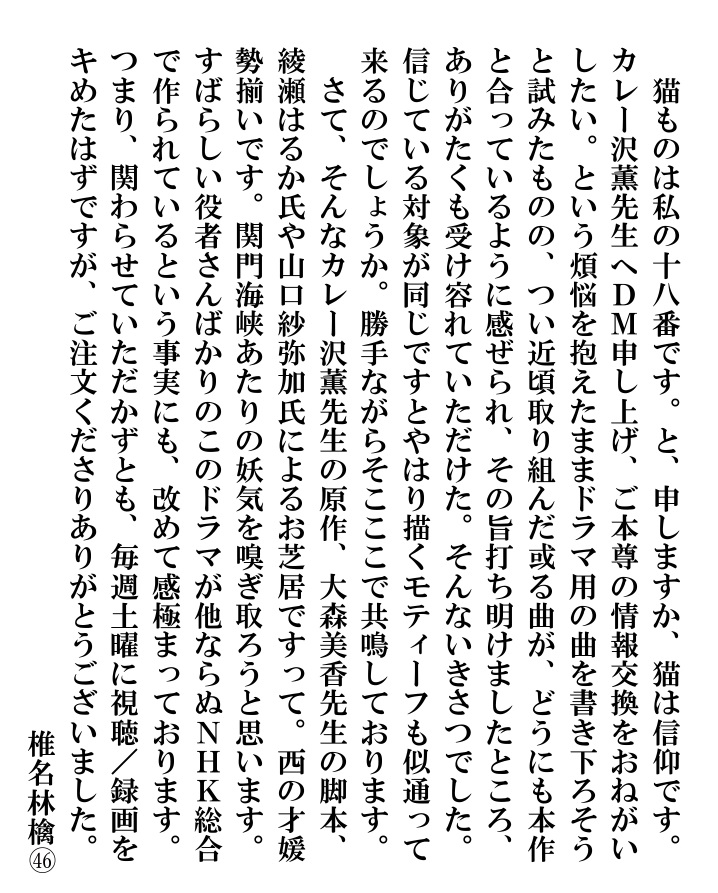 猫ものは私の十八番です。と、申しますか、猫は信仰です。
カレー沢薫先生へDM申し上げ、ご本尊の情報交換をおねがい
したい。という煩悩を抱えたままドラマ用の曲を書き下ろそう
と試みたものの、つい近頃取り組んだ或る曲が、どうにも本作
と合っているように感ぜられ、その旨打ち明けましたところ、
ありがたくも受け容れていただけた。そんないきさつでした。
信じている対象が同じですとやはり描くモティーフも似通って
来るのでしょうか。勝手ながらそこここで共鳴しております。
さて、そんなカレー沢薫先生の原作、大森美香先生の脚本、
綾瀬はるか氏や山口紗弥加氏によるお芝居ですって。西の才媛
勢揃いです。関門海峡あたりの妖気を嗅ぎ取ろうと思います。
すばらしい役者さんばかりのこのドラマが他ならぬNHK総合
で作られているという事実にも、改めて感極まっております。
つまり、関わらせていただかずとも、毎週土曜に視聴／録画を
キめたはずですが、ご注文くださりありがとうございました。
椎名林檎㊻